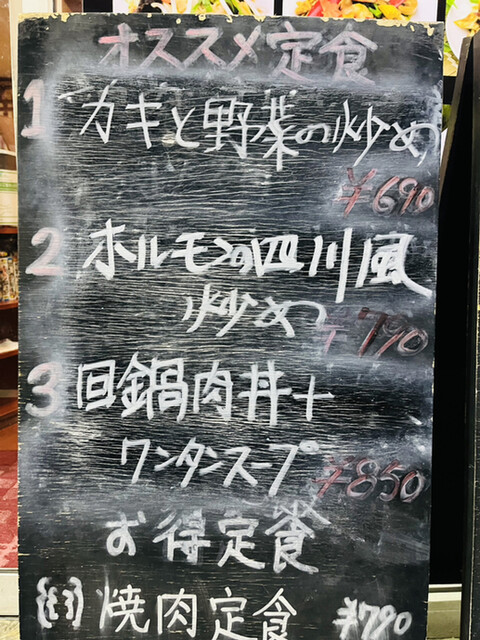 オススメ定食
1 カキと野菜の炒め
¥690
2 ホルモンの四川風
炒め ¥790
3 回鍋肉丼+
ワンタンスープ ¥850
お得定食
焼肉定食 ¥790